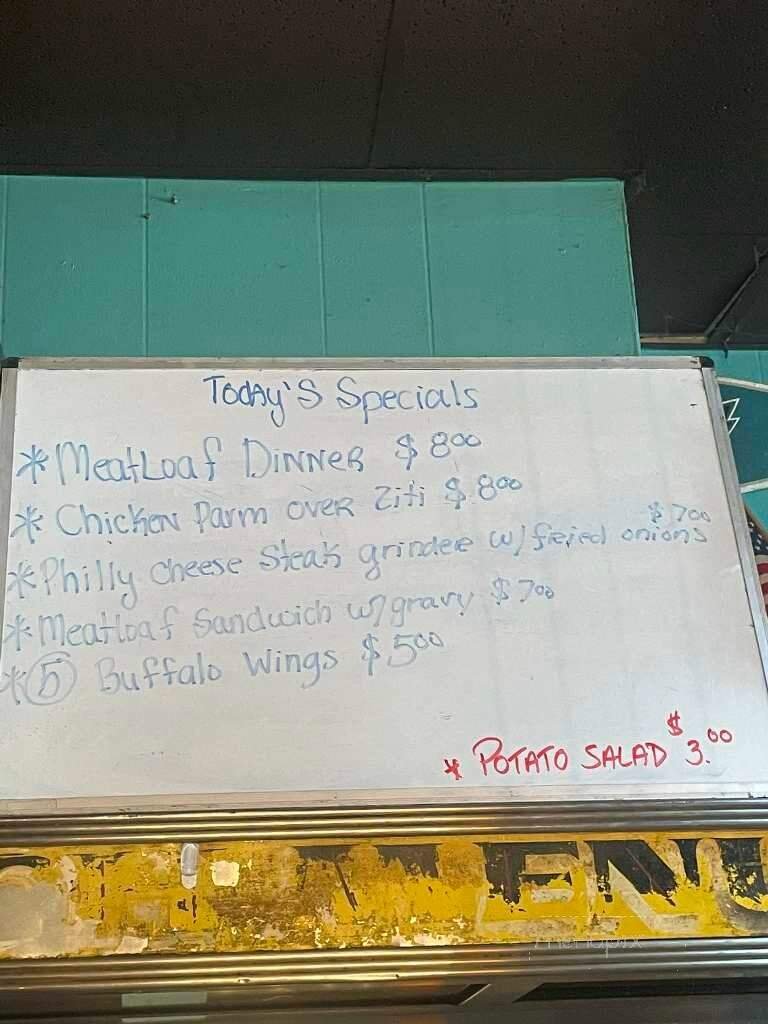 Today's Specials
* Meatloaf Dinner $8.00
* Chicken Parm over Ziti $8.00
$7.00
* Philly cheese Steak grinder w/ freied onions
* Meatloaf Sandwich w/ gravy $7.00
* 5 Buffalo Wings $5.00
* POTATO SALAD $3.00
menupix